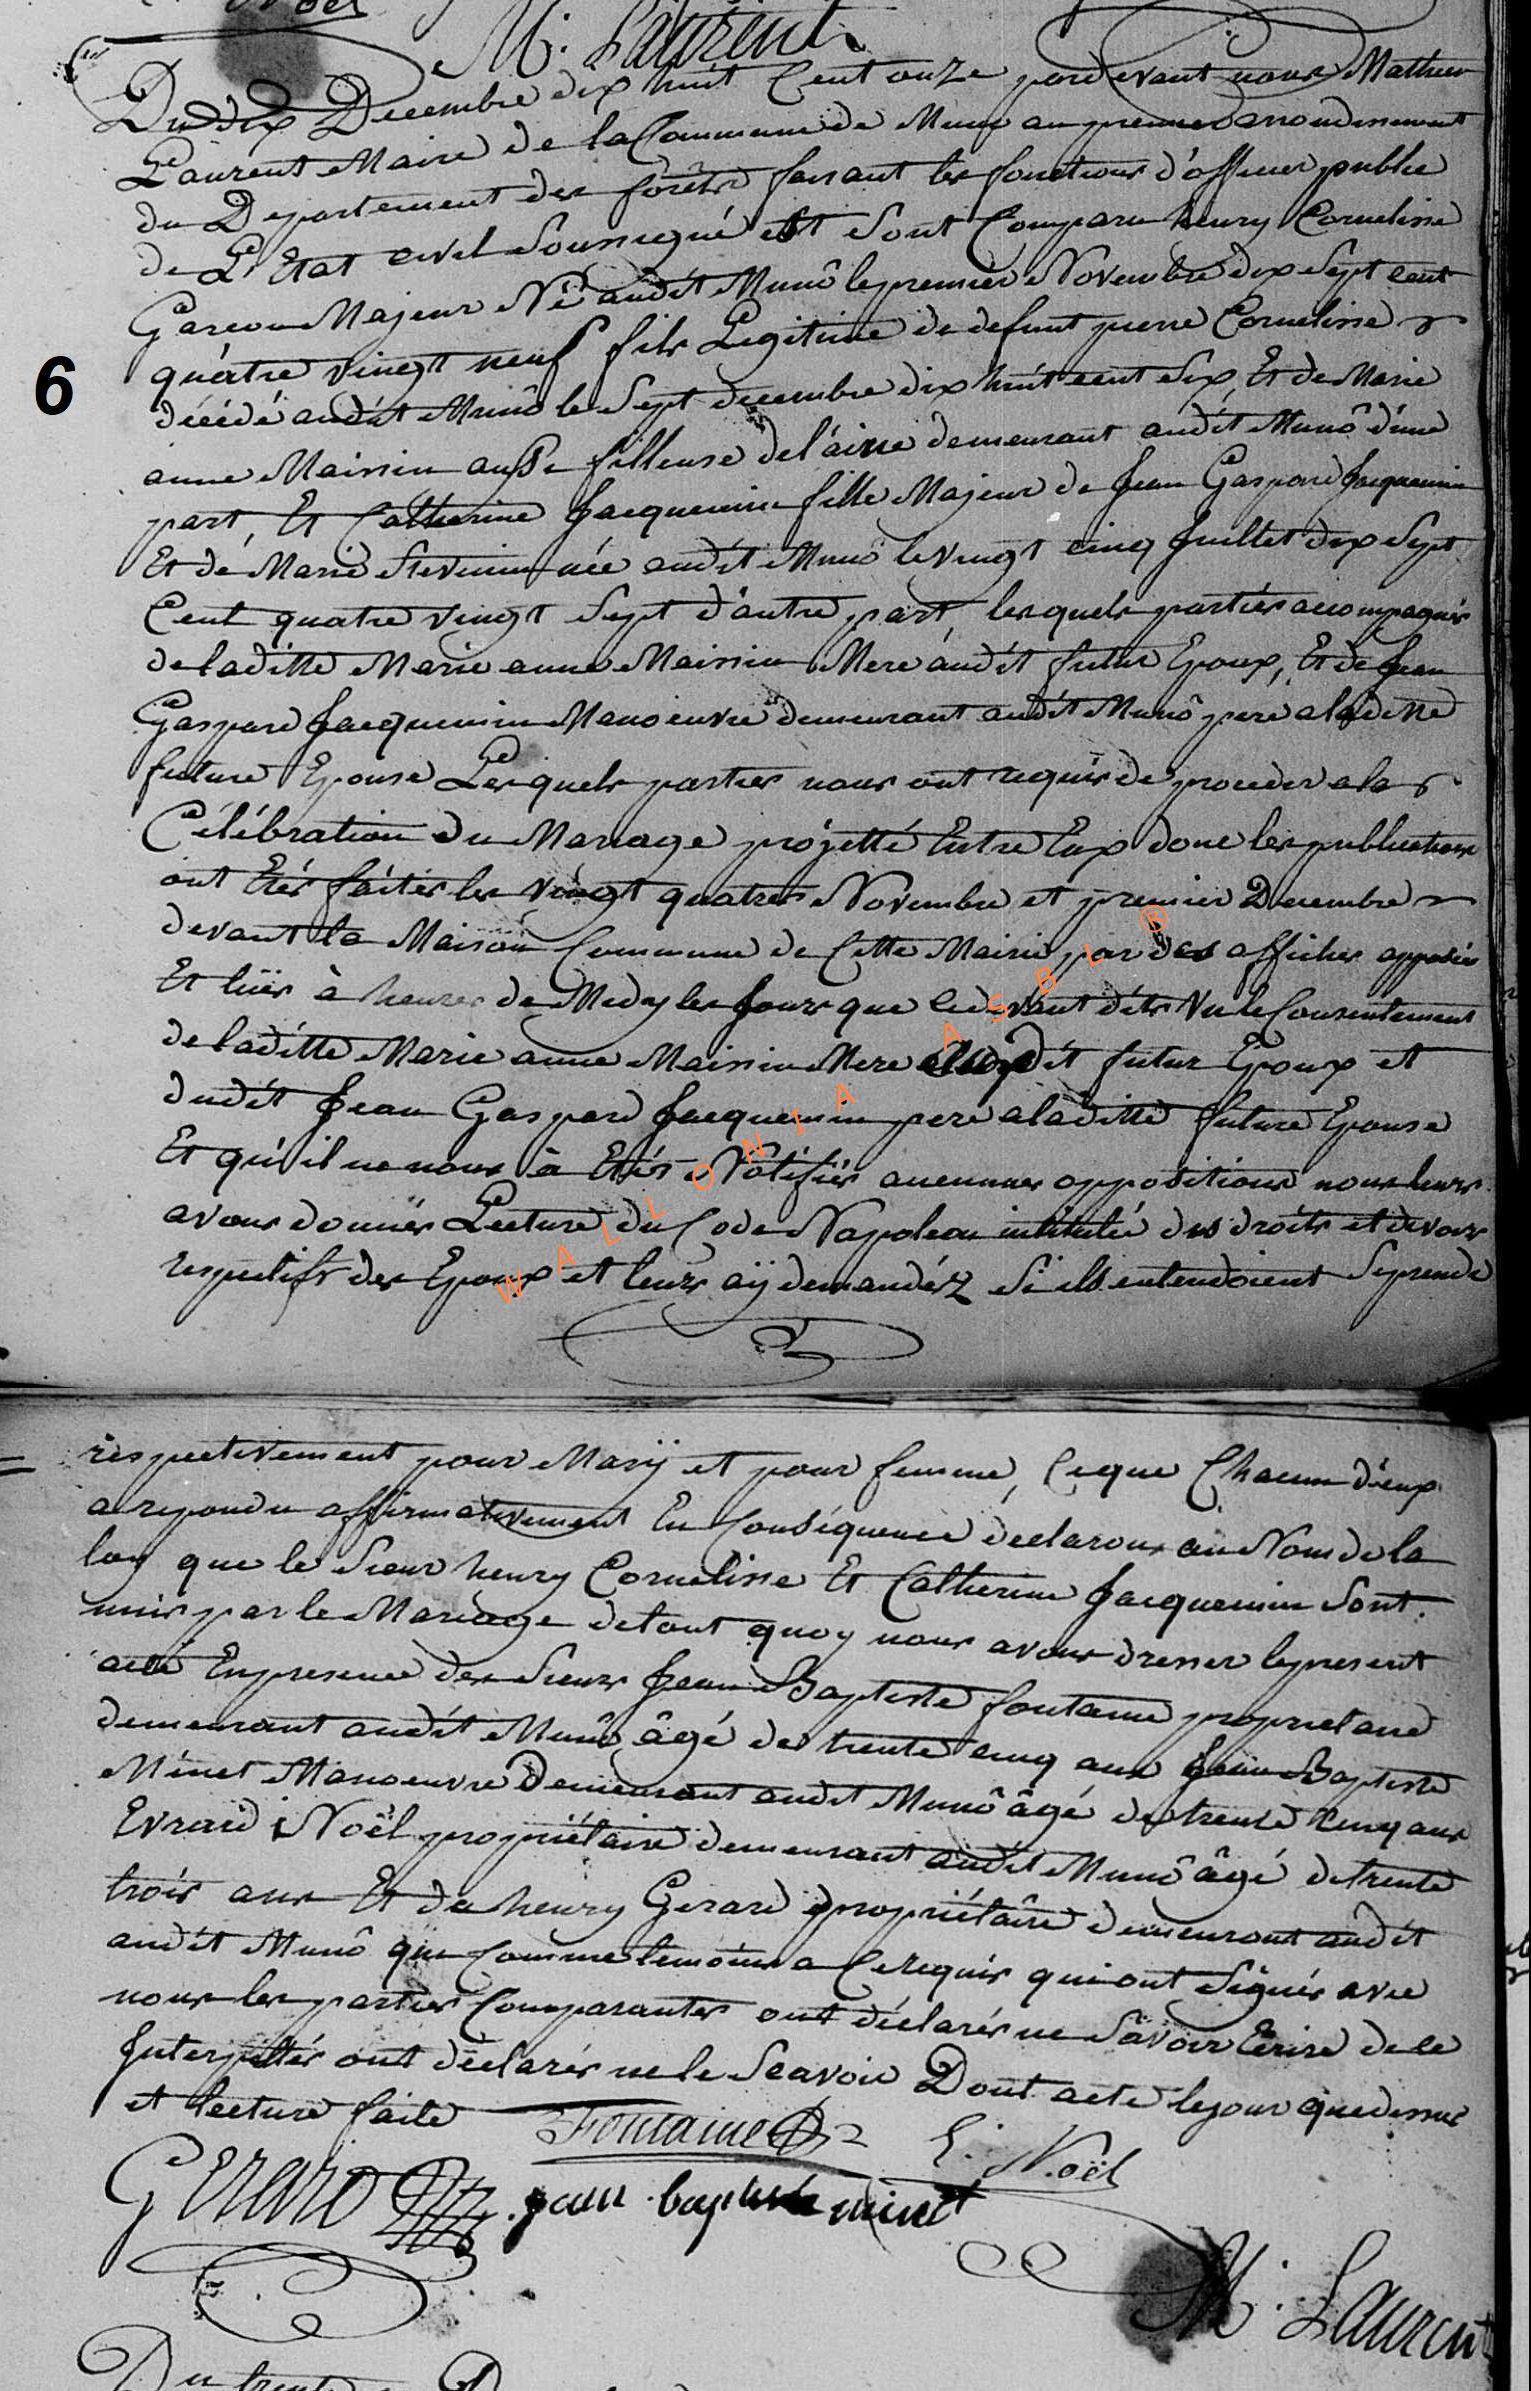 Noël
M. Laurent
Du dix Decembre dix huit Cent onze pardevant nous Mathieu
Laurent Maire de la Commune de Muno au premier arrondissement
du Departement des forêts faisant les fonctions d'officier public
de L'Etat civil Soussigné Est Sont Comparu henry Cornelisse
Garcon Majeur Né audit Munô le premier Novembre dix Sept cent
quatre vingt neuf fils Legitime de defunt pierre Cornelisse
6
décédé audit Munô le Sept decembre dix huit cent Six, Et de Marie
anne Maissin aussi filleuse de laine demeurant audit Munô d'une
part, Et Catherine Jacquemin fille Majeur de Jean Gaspard Jacquemin
Et de Marie Stevenin née audit Munô le vingt cinq Juillet dix Sept
Cent quatre vingt Sept d'autre part, lesquels parties accompagnés
de laditte Marie anne Maissin Mere audit futur Epoux, Et de Jean
Gaspard Jacquemin Manoeuvre demeurant audit Munô pere a laditte
future Epouse Lesquels parties nous ont requis de proceder a la
Célébration du Mariage projetté Entre Eux donc les publications
ont Etés faites les vingt quatres Novembre et premier Decembre
devant la Maison Commune de Cette Mairie par des affiches apposées
Et lües à heures de Midy les Jours que cidevant dits Vu le Consentement
de laditte Marie anne Maissin Mere dudit futur Epoux et
dudit Jean Gaspard Jacquemin pere a laditte future Epouse
Et qu'il ne nous à Etés Nôtifiés aucunnes oppositions nous leurs
avons donnés Lecture du Code Napoleon intitulé des droits et devoirs
respectifs des Epoux et leurs aÿ demandéz Si ils entendoient Se prendre
WALLONIA ASBL ®
respectivement pour Marÿ et pour femme, Ce que Chacun d'eux
a repondu affirmativement En Conséquence déclarons au Nom de la
loy que le Sieur henry Cornelisse Et Catherine Jacquemin Sont
unis par le Mariage de tout quoy nous avons dresser le present
acte En presence des Sieurs Jean Baptiste fontaine proprietaire
demeurant audit Munô âgé de trente cinq ans Jean Baptiste
Minet Manoeuvre Demeurant audit Munô âgé de trente cinq ans
Evrard Noël propriétaire demeurant audit Munô âgé de trente
trois ans Et de henry Gerard propriétaire demeurant audit
audit Munô que Comme temoins a Ce requis qui ont Signés avec
nous les parties Comparantes ont déclarés ne Savoir Ecrire de ce
Interpellés ont declarés ne le Scavoir Dont acte le jour que dessus
et lecture faite
Fontaine E. Noël
Gerard jean baptiste minet
M. Laurent
Du trente